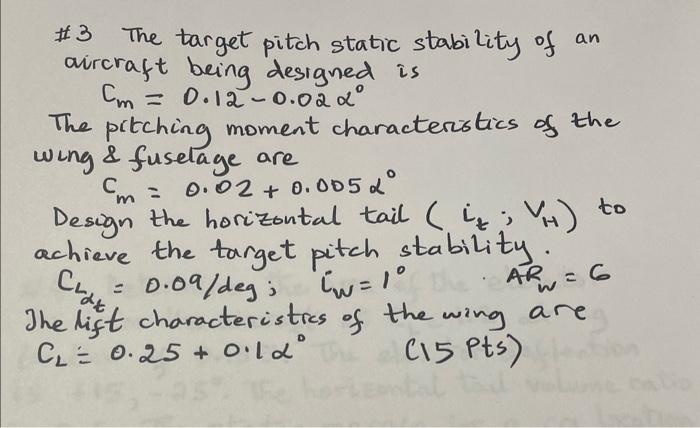 #3 The target pitch static stability of an
aircraft being designed is
Cm = 0.12 - 0.02 α°
The pitching moment characteristics of the
wing & fuselage are
Cm = 0.02 + 0.005 α°
Design the horizontal tail ( i_t ; V_H ) to
achieve the target pitch stability.
C_Lαt = 0.09/deg ; i_w = 1° AR_w = 6
The lift characteristics of the wing are
C_L = 0.25 + 0.1 α° (15 Pts)